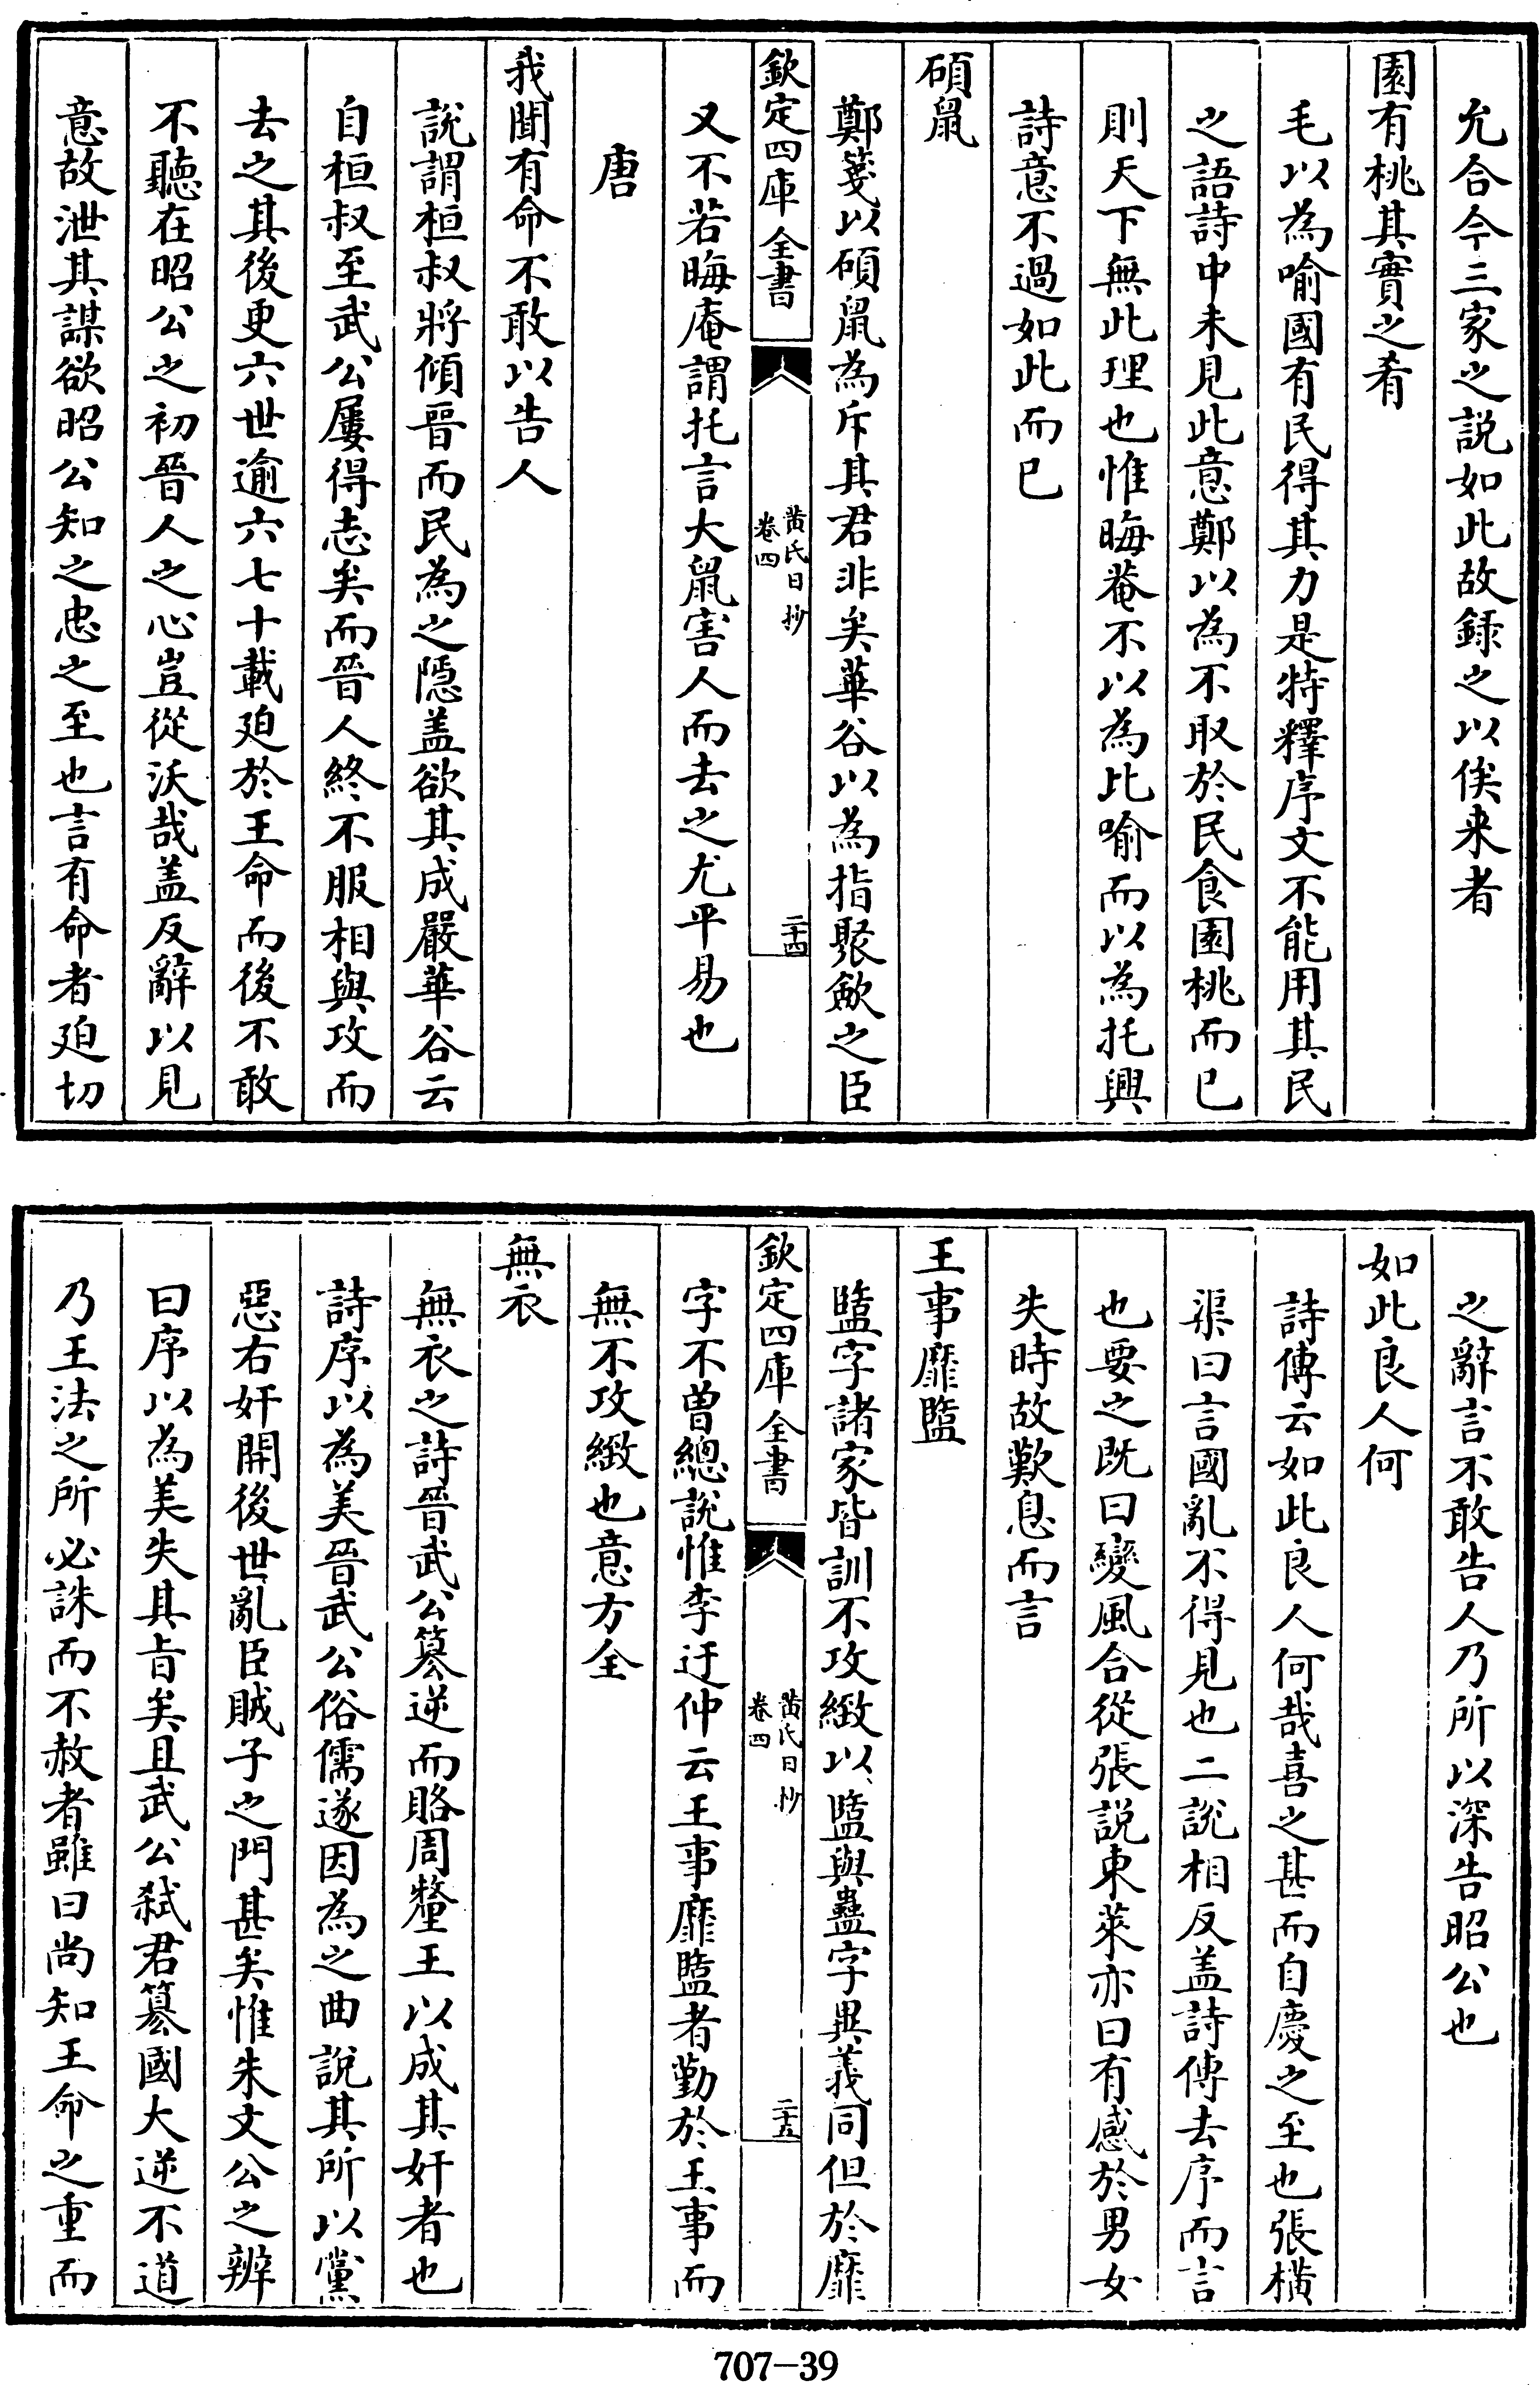 允合今三家之説如此故録之以俟来者
園有桃其實之肴
毛以為喻國有民得其力是特釋序文不能用其民
之語詩中未見此意鄭以為不取於民食園桃而已
則天下無此理也惟晦菴不以為比喻而以為托興
詩意不過如此而已
碩鼠
鄭箋以碩鼠為斥其君非矣華谷以為指聚斂之臣
欽定四庫全書
黄氏日抄
卷四
二十四
又不若晦庵謂托言大鼠害人而去之尤平易也
唐
我聞有命不敢以告人
說謂桓叔將傾晉而民為之隱盖欲其成嚴華谷云
自桓叔至武公屢得志矣而晉人終不服相與攻而
去之其後更六世逾六七十載廹於王命而後不敢
不聽在昭公之初晉人之心豈從沃哉盖反辭以見
意故泄其謀欲昭公知之忠之至也言有命者廹切
之辭言不敢告人乃所以深告昭公也
如此良人何
詩傳云如此良人何哉喜之甚而自慶之至也張横
渠曰言國亂不得見也二說相反盖詩傳去序而言
也要之既曰變風合從張説東萊亦曰有感於男女
失時故歎息而言
王事靡盬
盬字諸家皆訓不攻緻以盬與蠱字異義同但於靡
欽定四庫全書
黄氏日抄
卷四
二十五
字不曾總說惟李迂仲云王事靡盬者勤於王事而
無不攻緻也意方全
無衣
無衣之詩晉武公簒逆而賂周釐王以成其奸者也
詩序以為美晉武公俗儒遂因為之曲說其所以黨
惡右奸開後世亂臣賊子之門甚矣惟朱文公之辨
曰序以為美失其㫖矣且武公弑君簒國大逆不道
乃王法之所必誅而不赦者雖曰尚知王命之重而
707-39